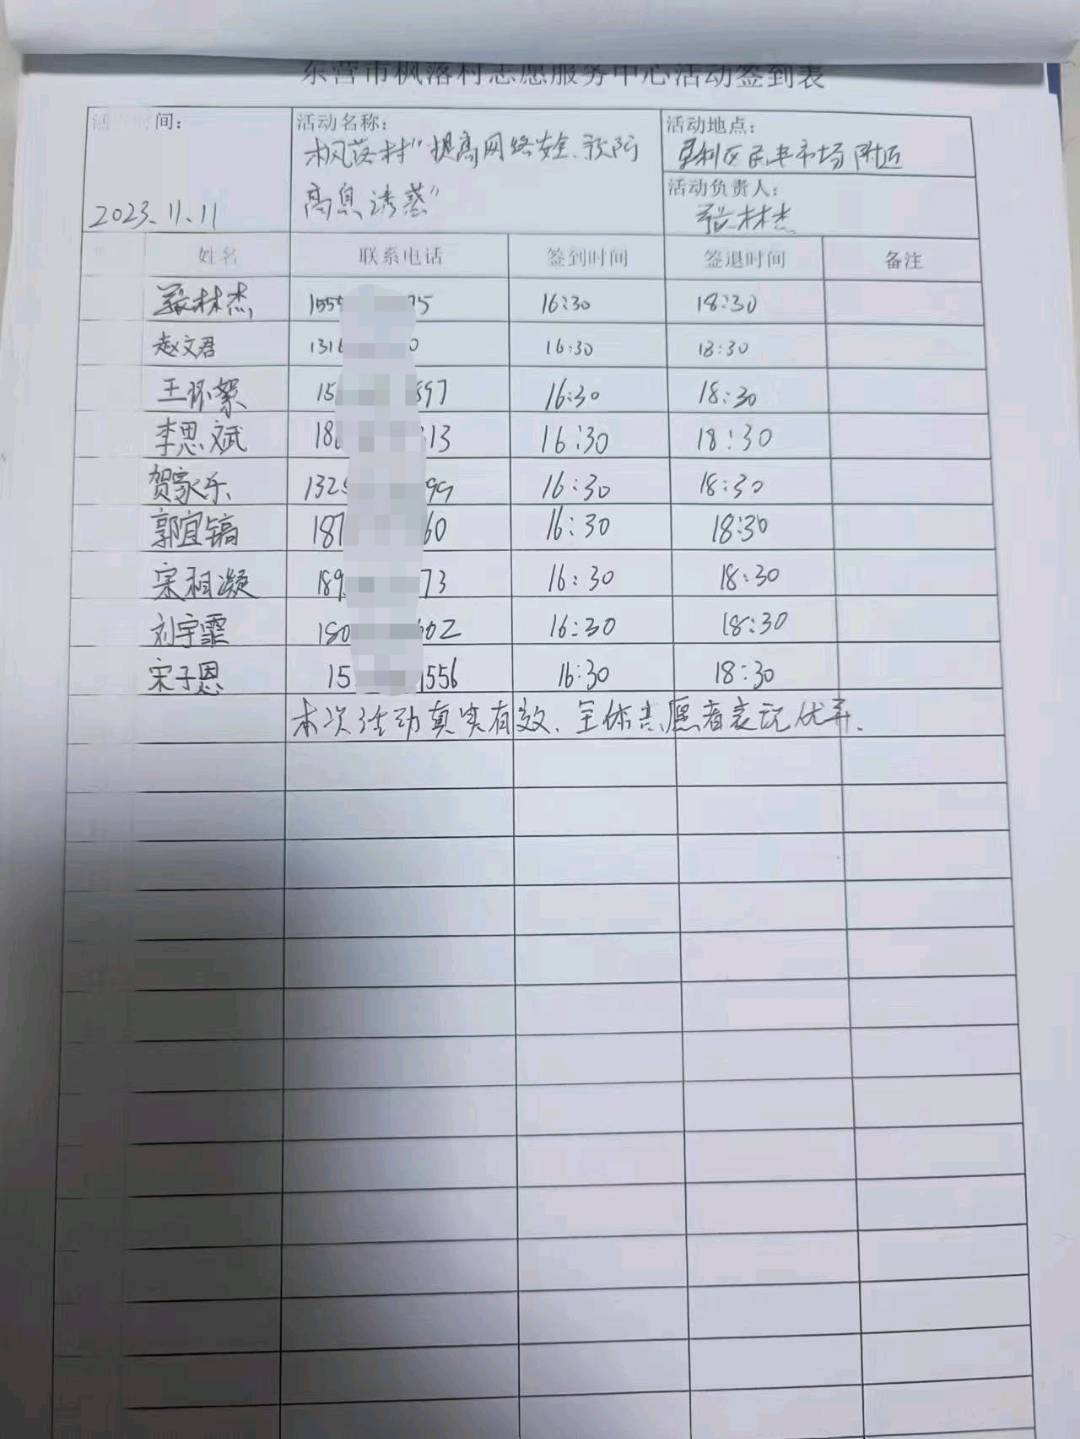 东营市枫落村志愿服务中心活动签到表
活动时间：
2023.11.11
活动名称：
枫落村“提高网络安全、预防
高息诱惑”
活动地点：
垦利区民丰市场附近
活动负责人：
张林杰
姓名 联系电话 签到时间 签退时间 备注
张林杰 155 75 16:30 18:30
赵文君 131 0 16:30 18:30
王怀絮 15 897 16:30 18:30
李思斌 18 313 16:30 18:30
贺家乐 132 99 16:30 18:30
郭宜镐 187 60 16:30 18:30
宋 凝 189 73 16:30 18:30
刘宇霏 180 602 16:30 18:30
宋子恩 15 556 16:30 18:30
本次活动真实有效、全体志愿者表现优异.